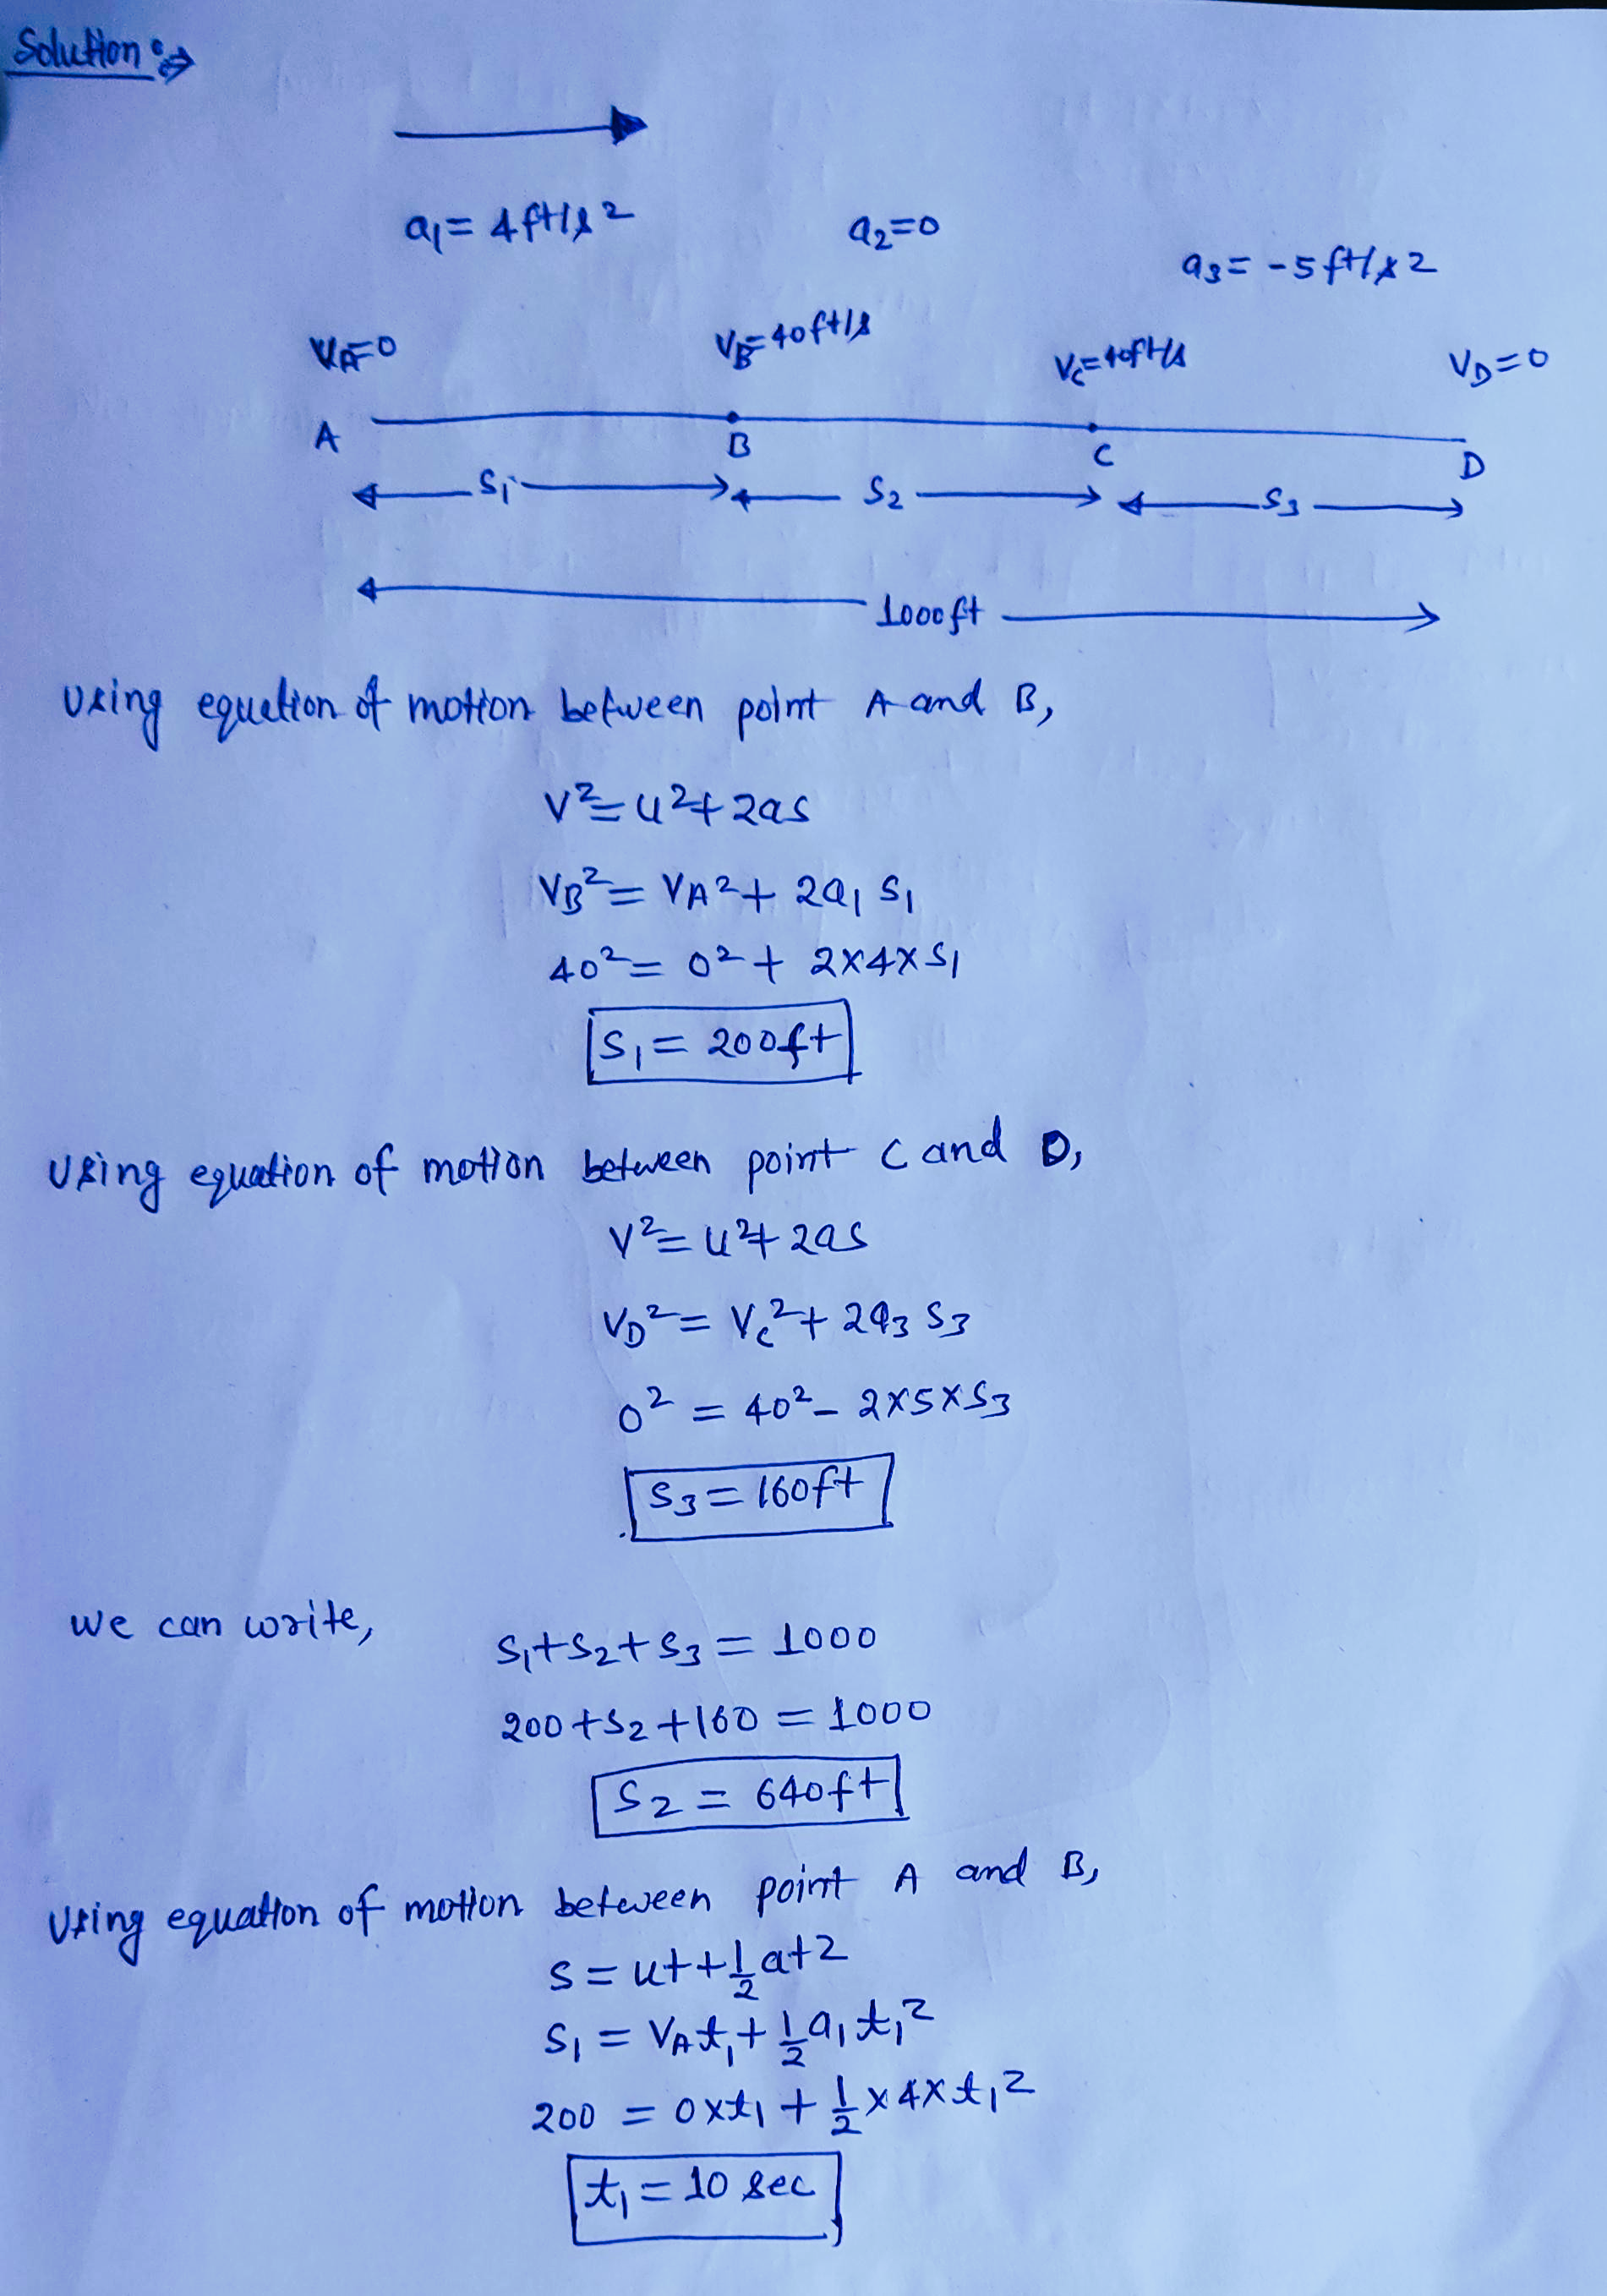 Solution :⇒
a₁ = 4 ft/s²
a₂ = 0
a₃ = -5 ft/s²
V_A = 0
V_B = 40 ft/s
V_C = 40 ft/s
V_D = 0
A
B
C
D
S₁
S₂
S₃
1000 ft
Using equation of motion between point A and B,
V² = u² + 2as
V_B² = V_A² + 2a₁ S₁
40² = 0² + 2×4×S₁
S₁ = 200 ft
Using equation of motion between point C and D,
V² = u² + 2as
V_D² = V_C² + 2a₃ S₃
0² = 40² - 2×5×S₃
S₃ = 160 ft
We can write,
S₁ + S₂ + S₃ = 1000
200 + S₂ + 160 = 1000
S₂ = 640 ft
Using equation of motion between point A and B,
S = ut + 1/2 at2
S₁ = V_A t₁ + 1/2 a₁ t₁²
200 = 0×t₁ + 1/2 × 4 × t₁²
t₁ = 10 sec